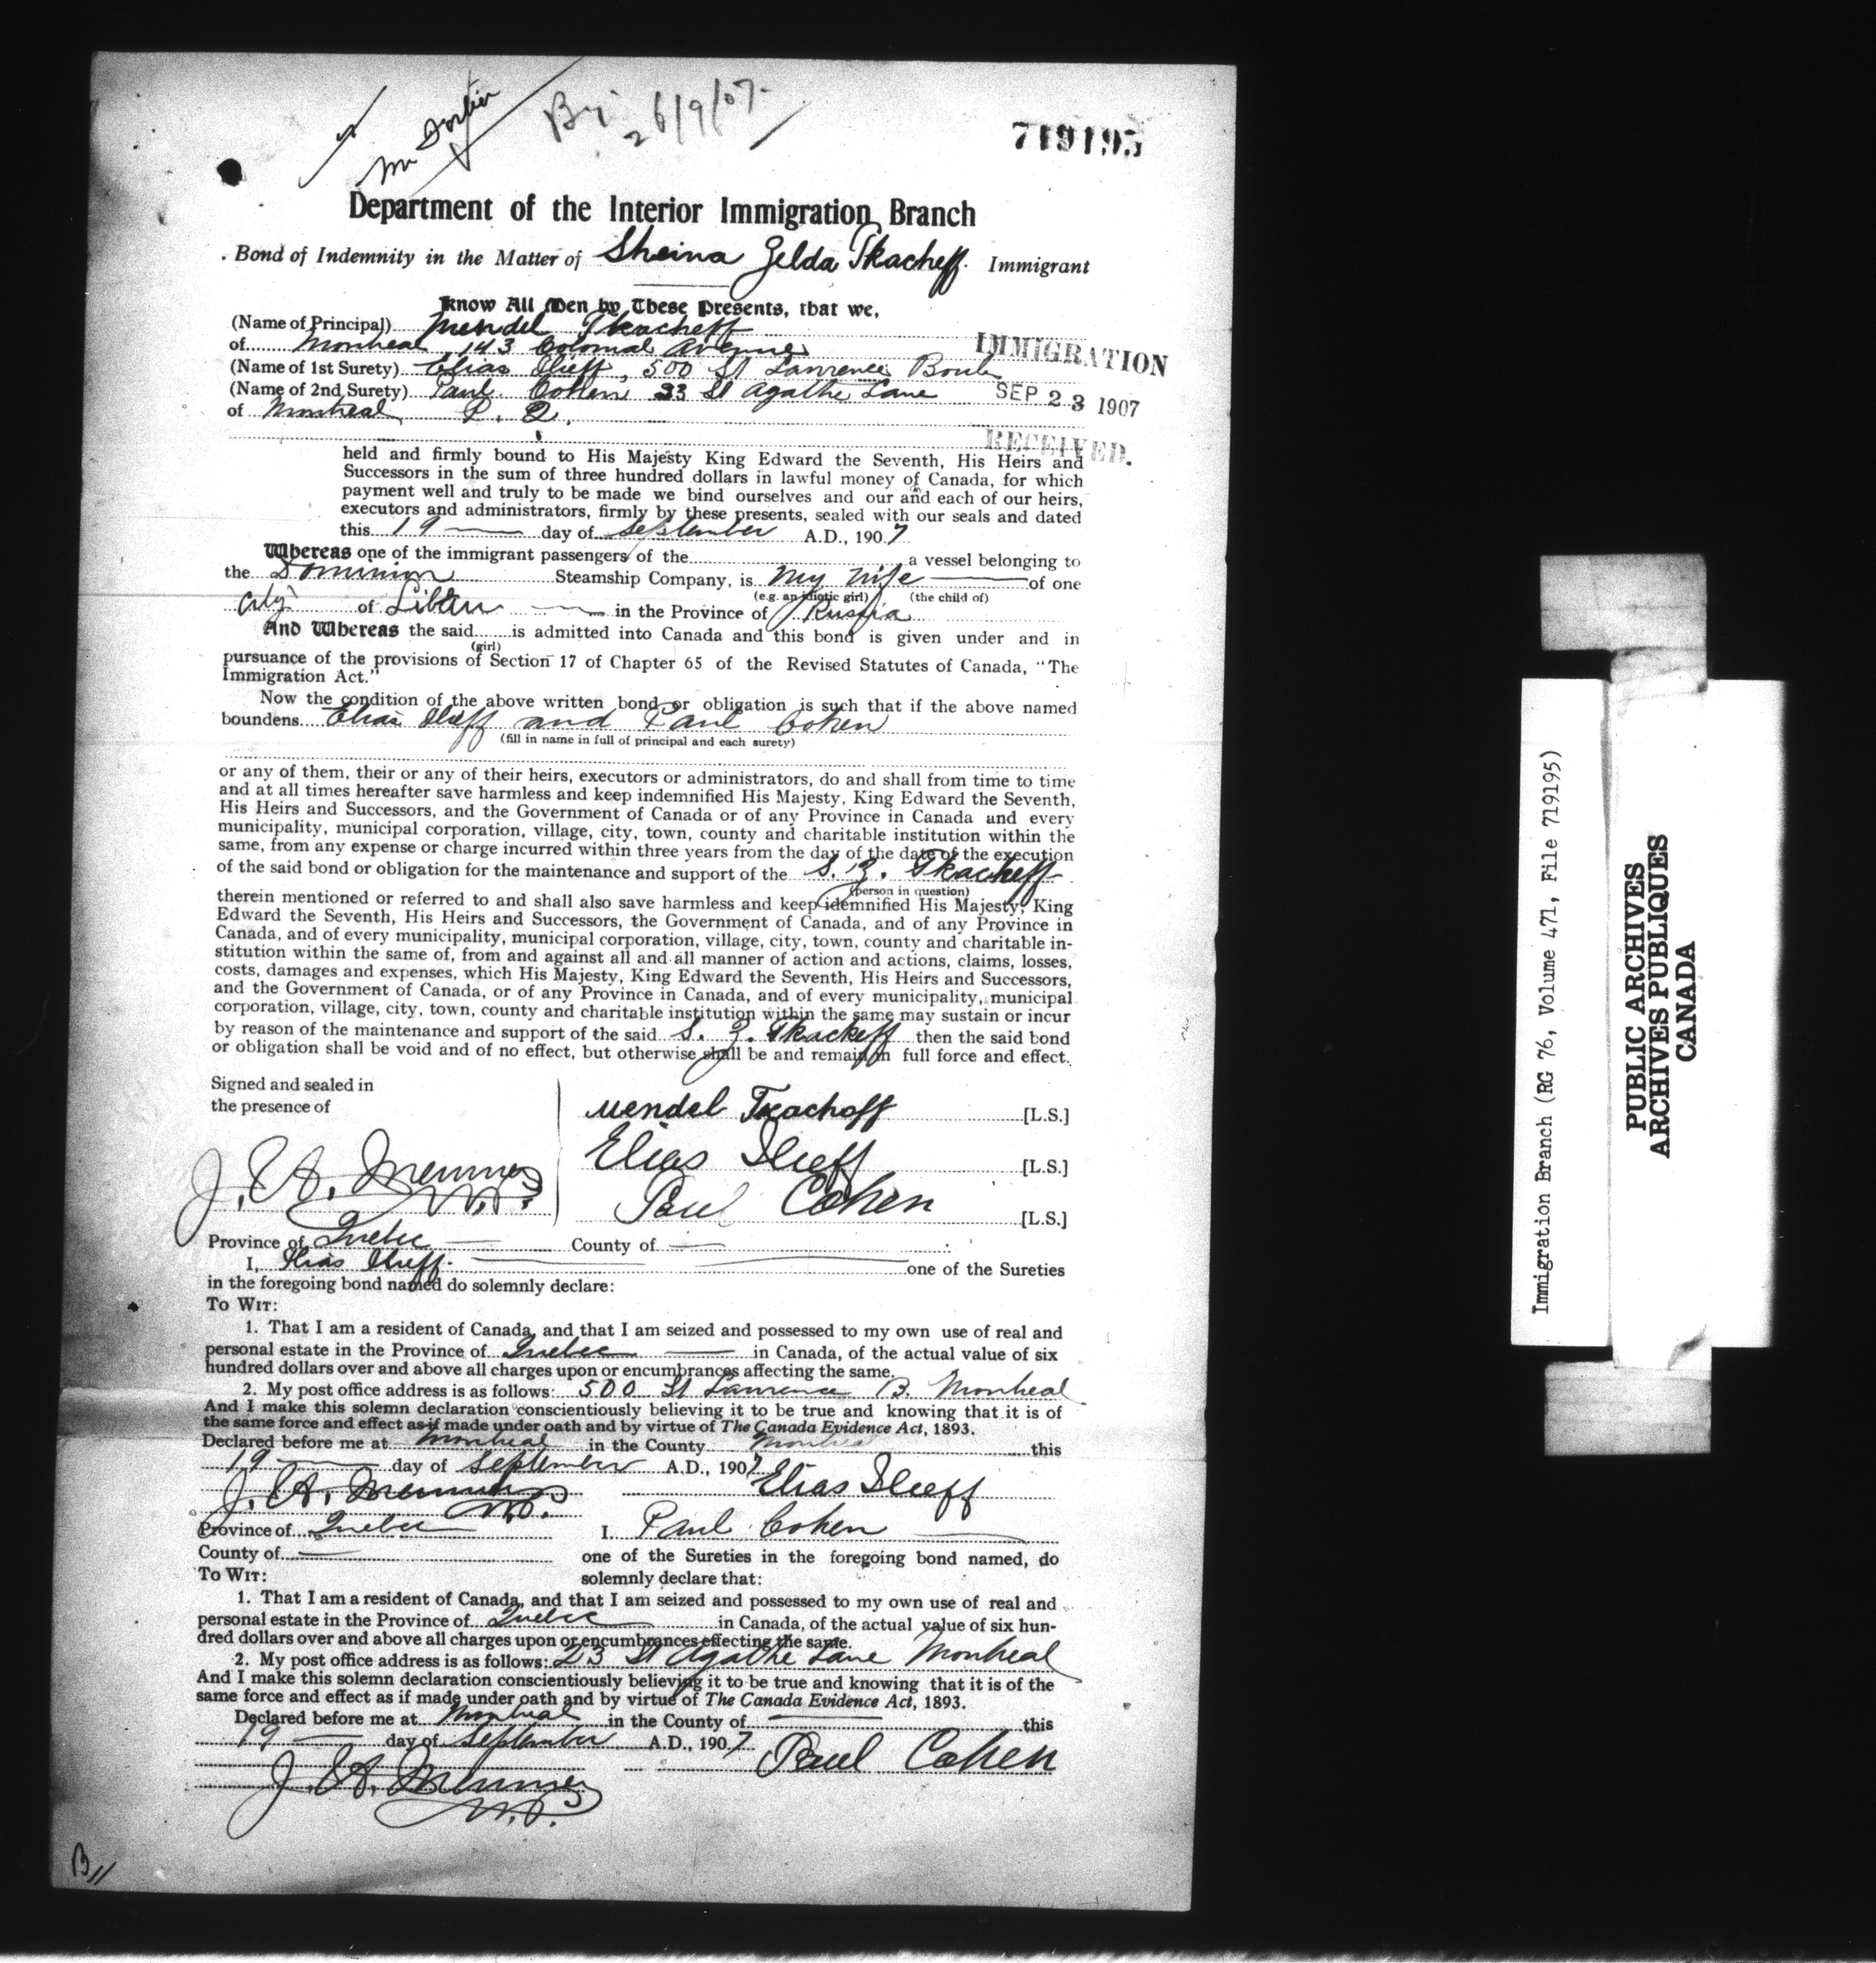 Mr Fortier
26/9/07
719195
Department of the Interior Immigration Branch
Bond of Indemnity in the Matter of Sheina Zelda Tkacheff. Immigrant
Know All Men by These Presents, that we,
(Name of Principal) Mendel Tkacheff
of Montreal 143 Colonial Avenue
IMMIGRATION
(Name of 1st Surety) Elias Ilieff, 500 St Lawrence Boul
(Name of 2nd Surety) Paul Cohen 23 St Agathe Lane
SEP 23 1907
of Montreal P. Q.
RECEIVED.
held and firmly bound to His Majesty King Edward the Seventh, His Heirs and
Successors in the sum of three hundred dollars in lawful money of Canada, for which
payment well and truly to be made we bind ourselves and our and each of our heirs,
executors and administrators, firmly by these presents, sealed with our seals and dated
this 19 day of September A.D., 1907
Whereas one of the immigrant passengers of the a vessel belonging to
the Dominion Steamship Company, is My Wife of one
(e.g. an idiotic girl) (the child of)
City of Libau in the Province of Russia
And Whereas the said is admitted into Canada and this bond is given under and in
(girl)
pursuance of the provisions of Section 17 of Chapter 65 of the Revised Statutes of Canada, "The
Immigration Act."
Now the condition of the above written bond or obligation is such that if the above named
boundens Elias Ilieff and Paul Cohen
(fill in name in full of principal and each surety)
or any of them, their or any of their heirs, executors or administrators, do and shall from time to time
and at all times hereafter save harmless and keep indemnified His Majesty, King Edward the Seventh,
His Heirs and Successors, and the Government of Canada or of any Province in Canada and every
municipality, municipal corporation, village, city, town, county and charitable institution within the
same, from any expense or charge incurred within three years from the day of the date of the execution
of the said bond or obligation for the maintenance and support of the S. Z. Tkacheff
(person in question)
therein mentioned or referred to and shall also save harmless and keep idemnified His Majesty, King
Edward the Seventh, His Heirs and Successors, the Government of Canada, and of any Province in
Canada, and of every municipality, municipal corporation, village, city, town, county and charitable in-
stitution within the same of, from and against all and all manner of action and actions, claims, losses,
costs, damages and expenses, which His Majesty, King Edward the Seventh, His Heirs and Successors,
and the Government of Canada, or of any Province in Canada, and of every municipality, municipal
corporation, village, city, town, county and charitable institution within the same may sustain or incur
by reason of the maintenance and support of the said S. Z. Tkacheff then the said bond
or obligation shall be void and of no effect, but otherwise shall be and remain in full force and effect.
Signed and sealed in
the presence of
Mendel Tkachoff [L.S.]
Elias Ilieff [L.S.]
Paul Cohen [L.S.]
Province of Quebec County of
I, Elias Ilieff one of the Sureties
in the foregoing bond named do solemnly declare:
To Wit:
1. That I am a resident of Canada, and that I am seized and possessed to my own use of real and
personal estate in the Province of Quebec in Canada, of the actual value of six
hundred dollars over and above all charges upon or encumbrances affecting the same.
2. My post office address is as follows: 500 St Lawrence B. Montreal
And I make this solemn declaration conscientiously believing it to be true and knowing that it is of
the same force and effect as if made under oath and by virtue of The Canada Evidence Act, 1893.
Declared before me at Montreal in the County Montreal this
19 day of September A.D., 1907
Elias Ilieff
Province of Quebec I Paul Cohen
County of one of the Sureties in the foregoing bond named, do
To Wit: solemnly declare that:
1. That I am a resident of Canada, and that I am seized and possessed to my own use of real and
personal estate in the Province of Quebec in Canada, of the actual value of six hun-
dred dollars over and above all charges upon or encumbrances effecting the same.
2. My post office address is as follows: 23 St Agathe Lane Montreal
And I make this solemn declaration conscientiously believing it to be true and knowing that it is of the
same force and effect as if made under oath and by virtue of The Canada Evidence Act, 1893.
Declared before me at Montreal in the County of this
19 day of September A.D., 1907
Paul Cohen
Immigration Branch (RG 76, Volume 471, File 719195)
PUBLIC ARCHIVES
ARCHIVES PUBLIQUES
CANADA